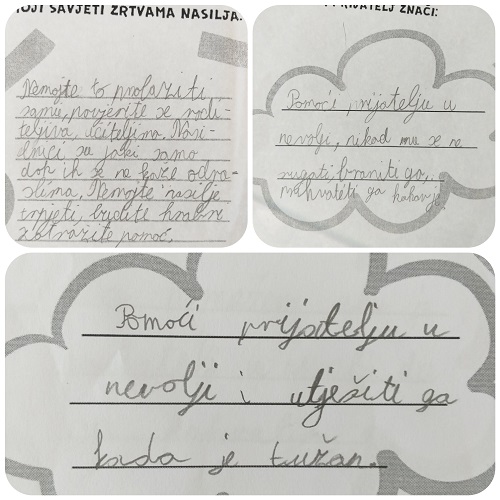 MOJI SAVJETI ŽRTVAMA NASILJA:
Nemojte to prolaziti
sami, povjerite se rodi-
teljima, učiteljima. Nasi-
lnici su jaki samo
dok ih se ne kaže odra-
slima. Nemojte nasilje
trpjeti, budite hrabri
zatražite pomoć.
PRIJATELJ ZNAČI:
Pomoći prijatelju u
nevolji, nikad mu se ne
rugati, braniti ga,
prihvatiti ga kakav je
Pomoći prijatelju u
nevolji i utješiti ga
kada je tužan.